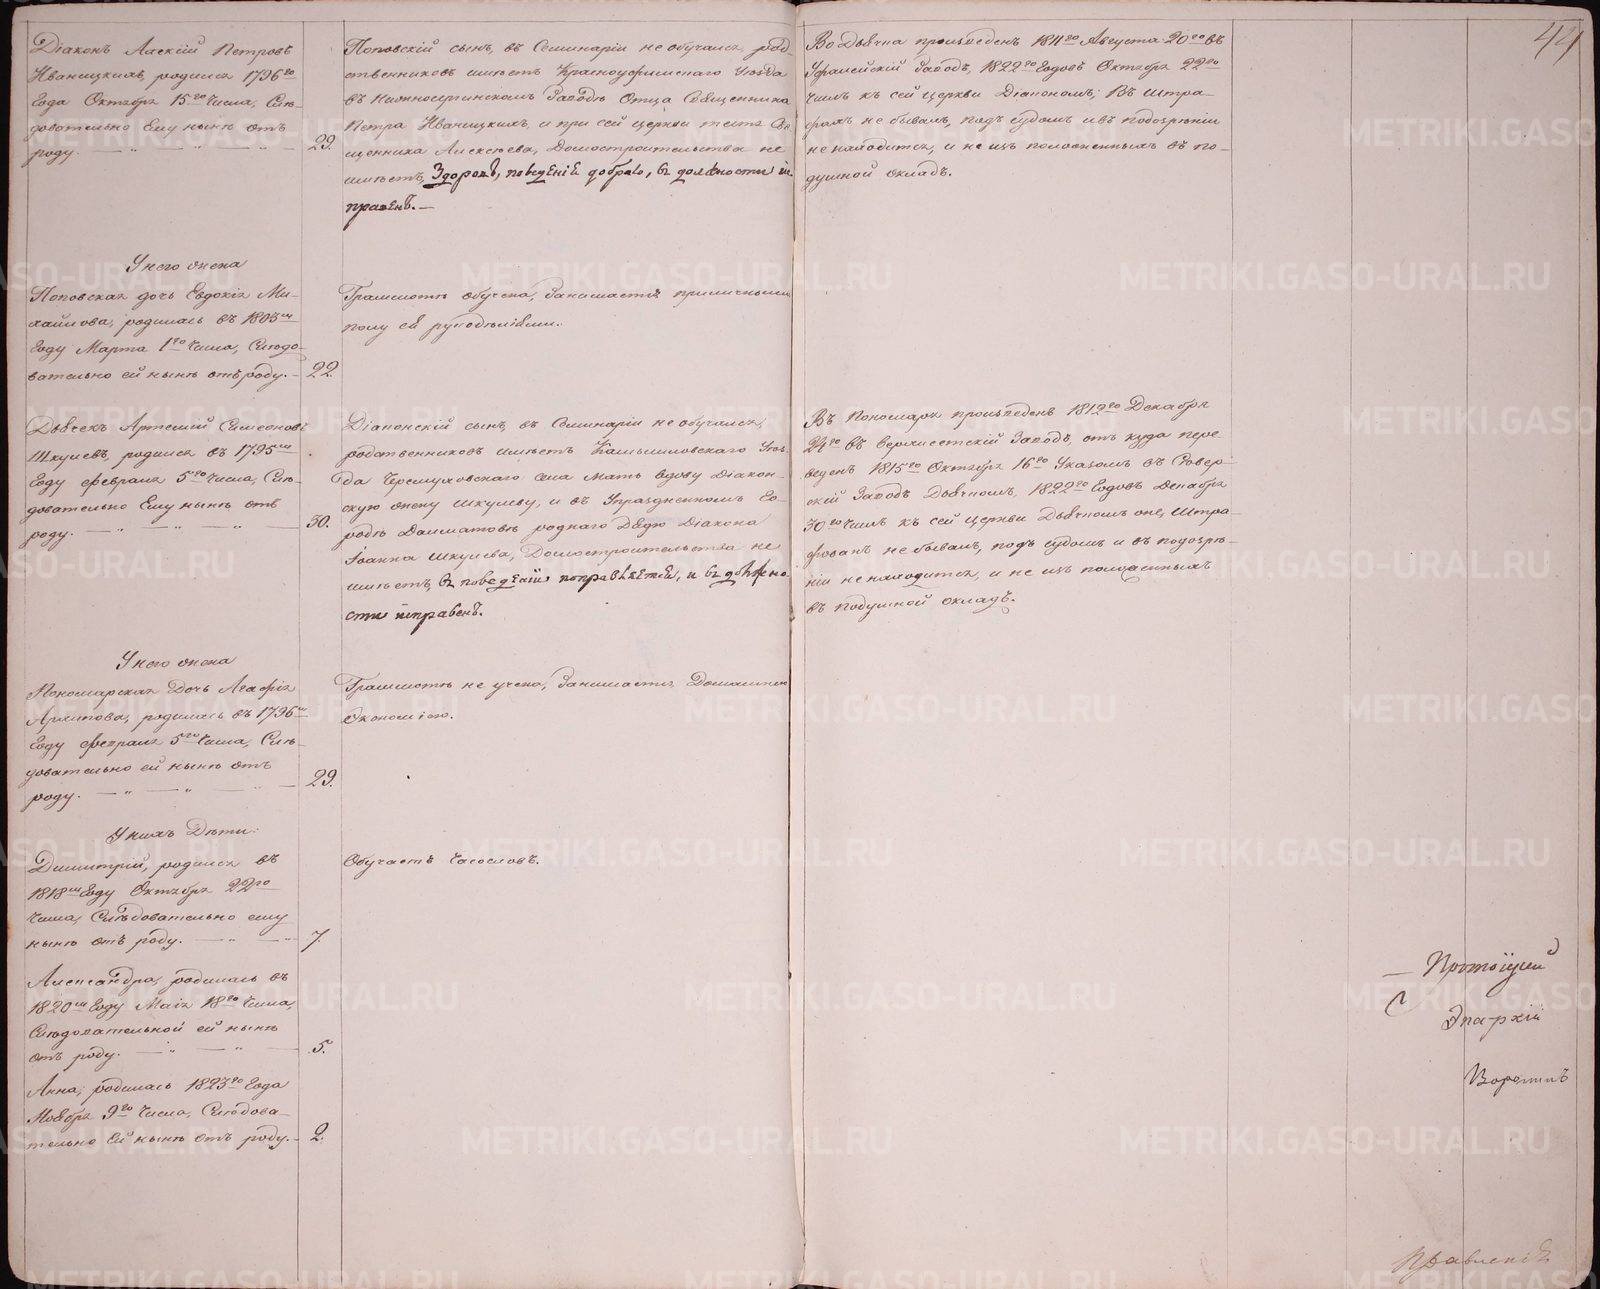 44
Діаконъ Алексій Петровъ
Иваницкихъ, родился 1796го
Года Октября 15го Числа, Слѣ-
довательно Ему нынѣ отъ
роду. 29.
Поповскій сынъ, въ Семинаріи не обучался, род-
ственниковъ имѣетъ Красноуфимскаго Уѣзда
въ Нижносергинскомъ Заводѣ Отца Священника
Петра Иваницкихъ, и при сей церкви тестя Свя-
щенника Алексѣева, Домостроительства не
имѣетъ, Здоровъ, поведенія добраго, въ должности ис-
правенъ.
Во Дьячка произведенъ 1811го Августа 20го въ
Уфалейскій Заводъ, 1822го Годовъ Октября 22го
Числъ къ сей церкви Діакономъ; Въ штра-
фахъ не бывалъ, подъ судомъ и въ подозрѣніи
не находится, и не изъ положенныхъ въ по-
душной окладъ.
У него жена
Поповская дочь Евдокія Ми-
хайлова, родилась въ 1803мъ
Году Марта 1го Числа, Слѣдо-
вательно ей нынѣ отъ роду. 22.
Грамотѣ обучена, Занимается приличными
полу ея рукодѣліями.
Дьячекъ Артемій Симеоновъ
Шкулевъ, родился въ 1795мъ
Году февраля 5го Числа, Слѣ-
довательно Ему нынѣ отъ
роду. 30.
Діаконскій сынъ, въ Семинаріи не обучался,
родственниковъ имѣетъ Камышловскаго Уѣз-
да Черемуховскаго села мать вдову Діакон-
скую жену Шкулеву, и въ Упраздненномъ Го-
родѣ Далматовѣ роднаго Дядю Діакона
Іоанна Шкулева, Домостроительства не
имѣетъ, въ поведеніи поправляется, и въ должно-
сти исправенъ.
Въ Пономаря произведенъ 1812го Декабря
24го въ Верхисетскій Заводъ, отъ куда пере-
веденъ 1815го Октября 16го Указомъ въ Сѣвер-
скій Заводъ Дьячкомъ, 1822го Годовъ Декабря
30го Числъ къ сей Церкви Дьячкомъ же, Штра-
фованъ не бывалъ, подъ судомъ и въ подозрѣ-
ніи не находится, и не изъ положенныхъ
въ подушной окладъ.
У него жена
Пономарская Дочь Агафія
Архипова, родилась въ 1796мъ
Году февраля 5го Числа, Слѣ-
довательно ей нынѣ отъ
роду. 29.
Грамотѣ не учена, Занимается Домашнею
Экономіею.
У нихъ Дѣти:
Димитрій, родился въ
1818мъ Году Октября 22го
Числа, Слѣдовательно ему
нынѣ отъ роду. 7.
Обучаетъ Часословъ.
Александра, родилась въ
1820мъ Году Маія 18го Числа,
Слѣдовательной ей нынѣ
отъ роду. 5.
Анна, родилась 1823го Года
Ноября 9го Числа, Слѣдова-
тельно Ей нынѣ отъ роду. 2.
Епархіи
Правленіе
METRIKI.GASO-URAL.RU